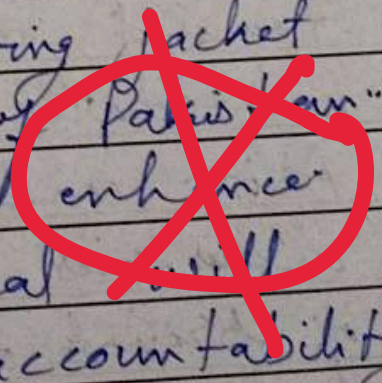 ring jacket
of Pakistan"
enhance
al will
accountabilit